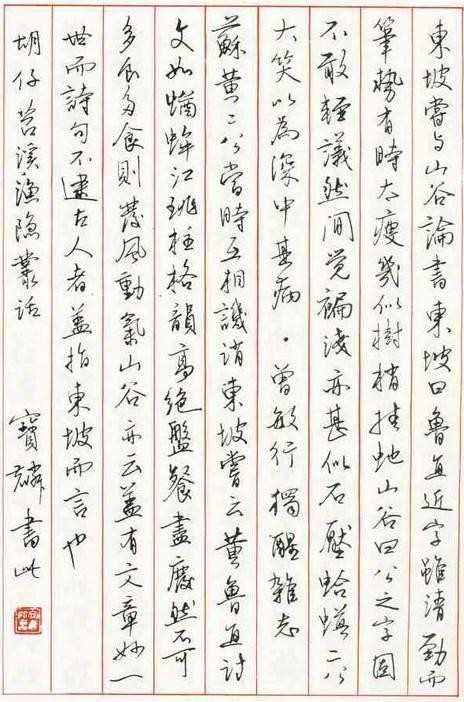 東坡嘗与山谷論書東坡曰魯直近字雖清勁而
筆勢有時太瘦幾似樹梢挂虵山谷曰公之字固
不敢輕議然間觉褊淺亦甚似石壓蛤蟆二公
大笑以為深中其病·曾敏行獨醒雜志
蘇黄二公當時互相譏誚東坡嘗云黄魯直詩
文如蝤蛑江珧柱格韻高绝盤餐盡廢然不可
多食多食則發風動氣山谷亦云盖有文章妙一
世而詩句不逮古人者盖指東坡而言也
胡仔苕溪漁隐叢話 寶麟書此